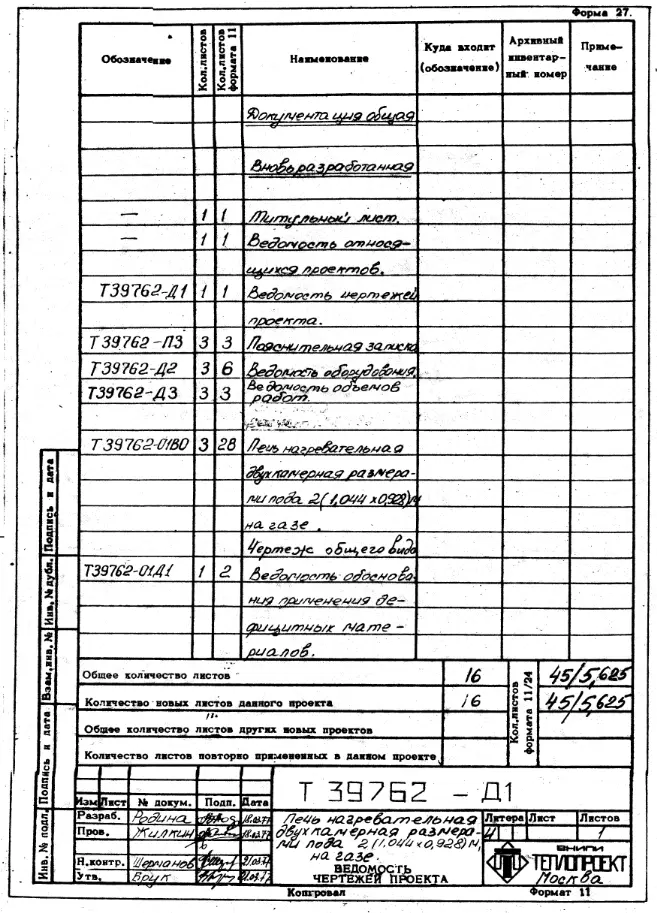 Форма 27.
Обозначение
Кол.листов
Кол.листов формата 11
Наименование
Куда входит (обозначение)
Архивный инвентар- ный номер
Приме- чание
Документация общая
Вновь разработанная
— 1 1 Титульный лист.
— 1 1 Ведомость относя-
щихся проектов.
Т39762-Д1 1 1 Ведомость чертежей
проекта.
Т39762-ПЗ 3 3 Пояснительная записка
Т39762-Д2 3 6 Ведомость оборудования.
Т39762-Д3 3 3 Ведомость объемов
работ.
Т39762-01ВО 3 28 Печь нагревательная
двухкамерная размера-
ми пода 2(1,044 х0,928)м
на газе.
Чертеж общего вида
Т39762-01Д1 1 2 Ведомость обоснова-
ния применения де-
фицитных мате-
риалов.
Общее количество листов 16 45/5,625
Количество новых листов данного проекта 16 45/5,625
Общее количество листов других новых проектов
Количество листов повторно примененных в данном проекте
Кол.листов формата 11/24
Инв. № подл.
Подпись и дата
Взам.инв. №
Инв. № дубл.
Подпись и дата
Т 39762 – Д1
Изм Лист № докум. Подп. Дата
Разраб. Родина 18.03.77
Пров. Жилкин 18.03.77
Н.контр.
Утв. Брук 21.03.77
Печь нагревательная
двухкамерная размера-
ми пода 2(1.044х0,928)м,
на газе.
ВЕДОМОСТЬ
ЧЕРТЕЖЕЙ ПРОЕКТА
Литера Лист Листов
1
ВНИПИ
ТЕПЛОПРОЕКТ
Москва
Копировал
Формат 11